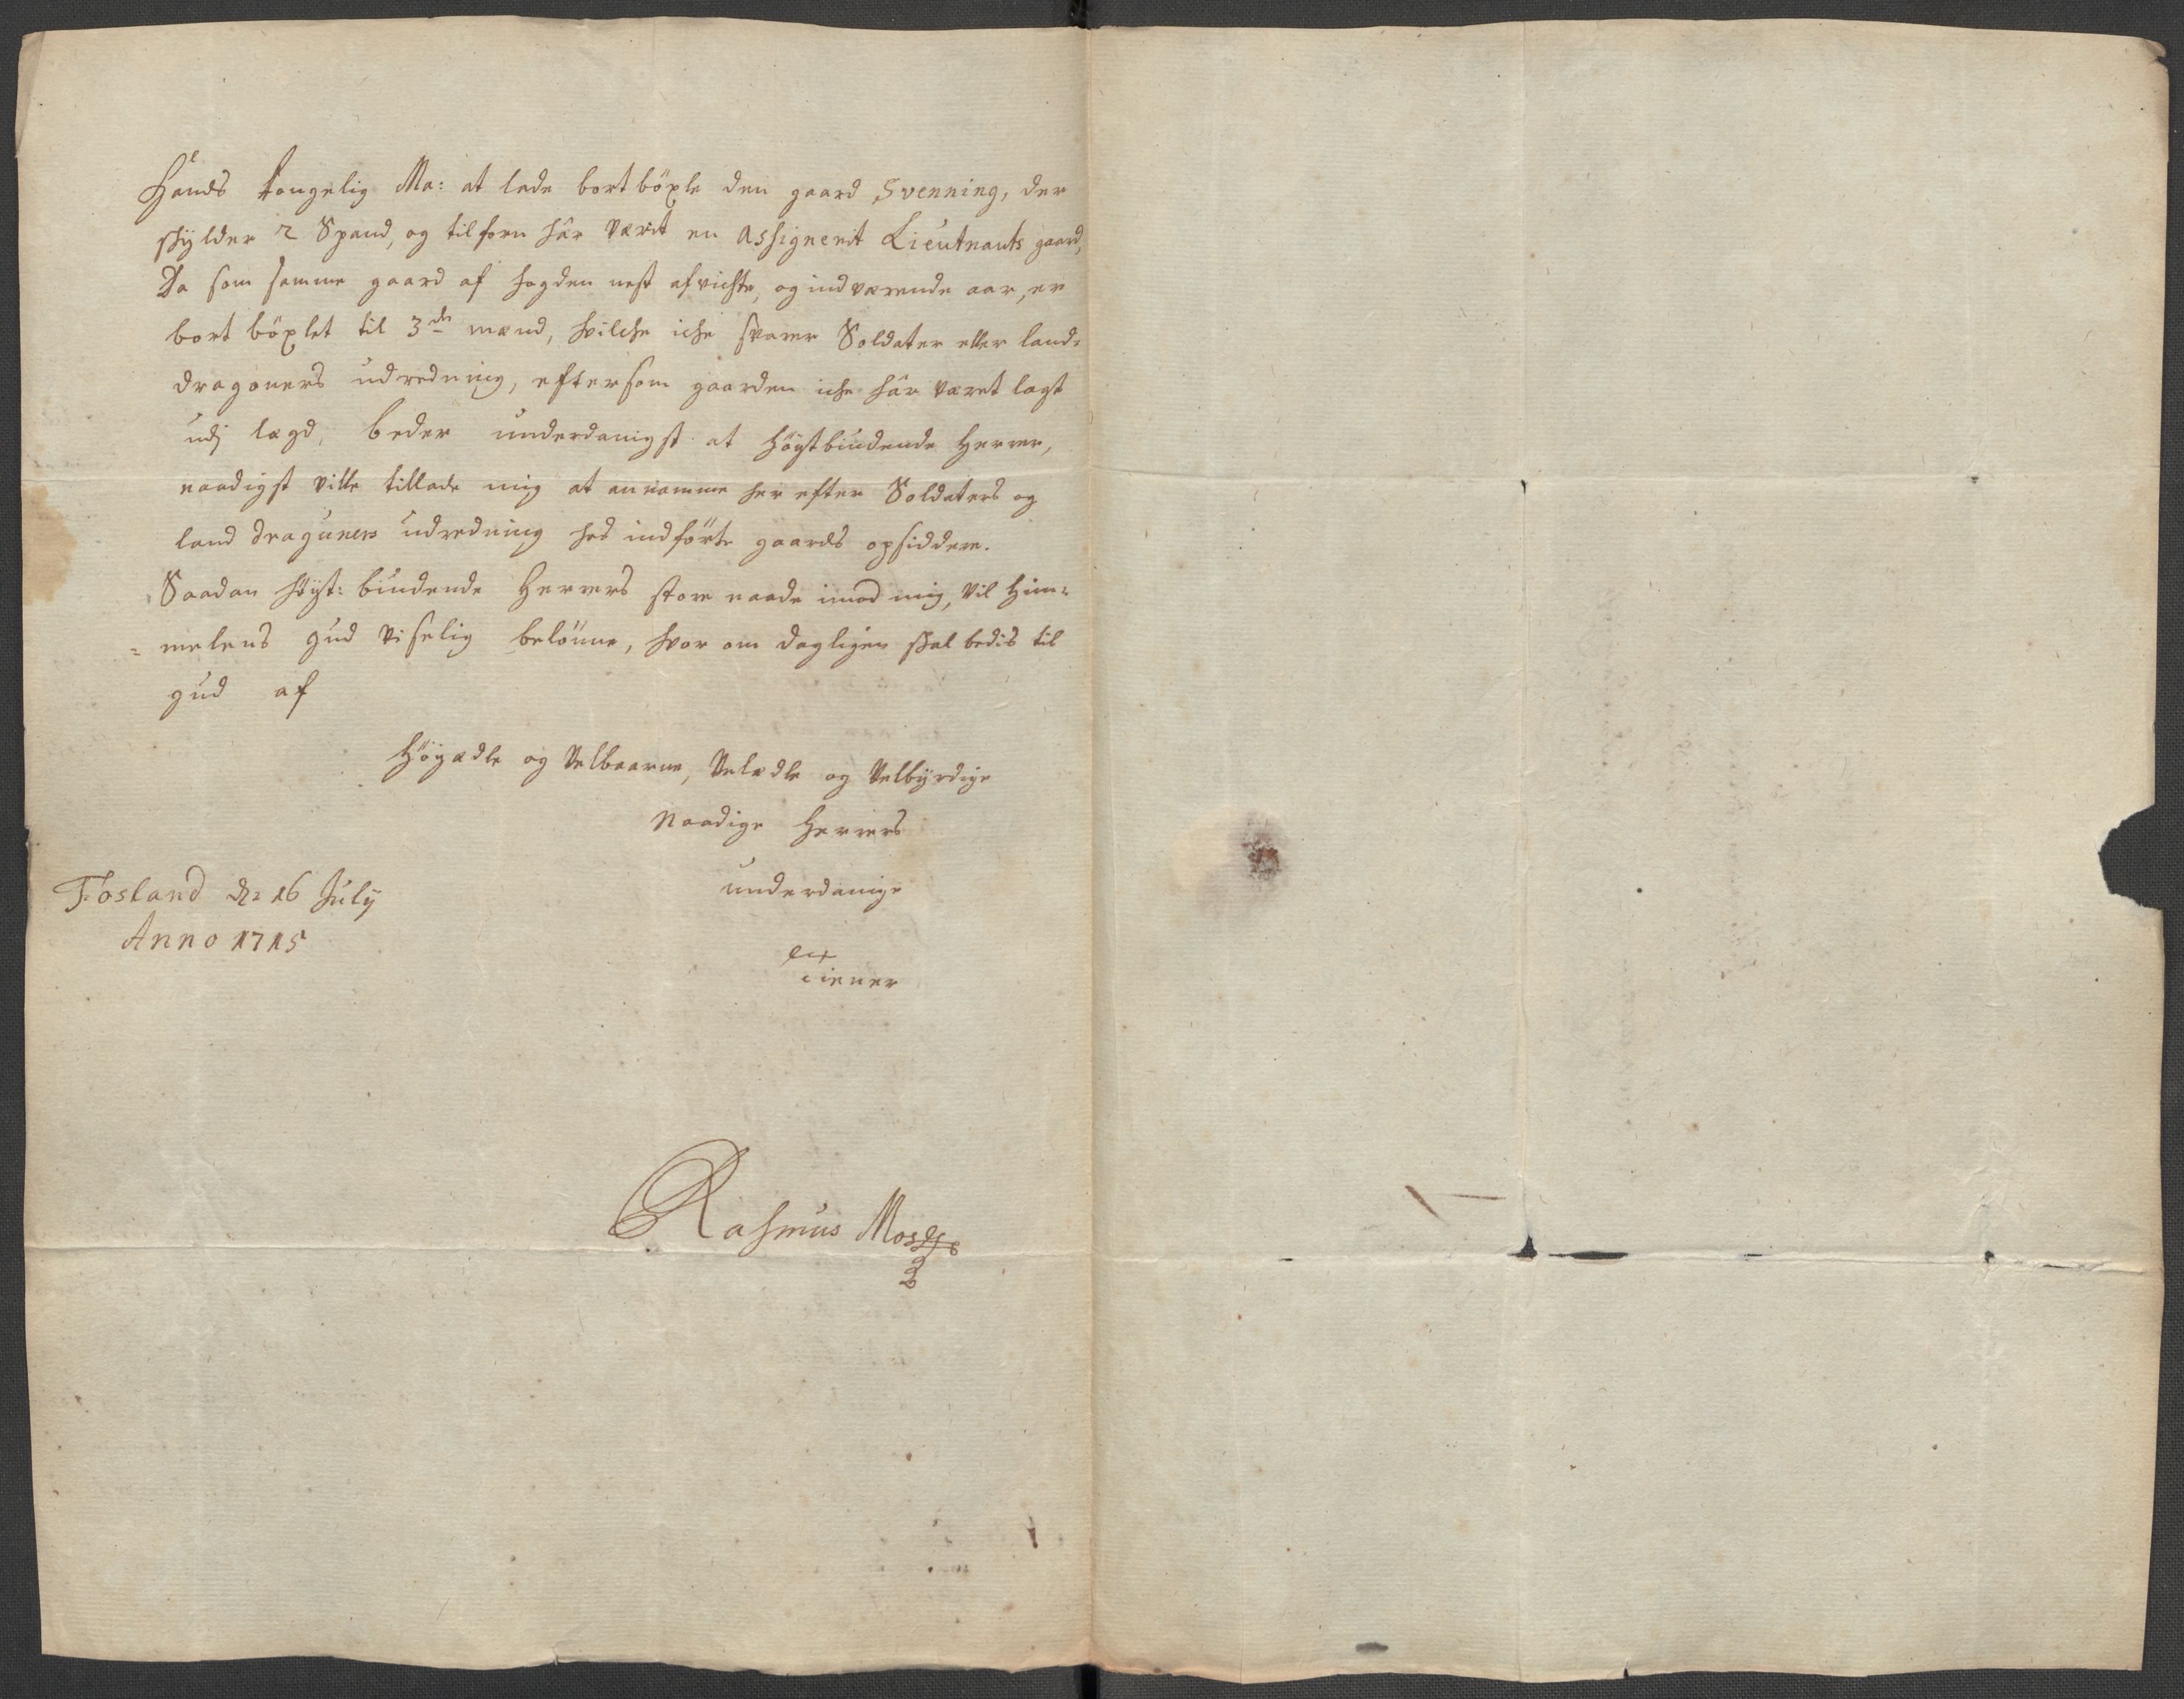 Hands Kongelig Ma: at lade bortböxle den gaard Svenning, der
skylder 2 Spand, og tilforn har værit en Assignerit Lieutnants gaard,
Da som samme gaard af fogden nest afvichte, og indværende aar, er
bort böxlet til 3de mænd, hvilche iche svarer Soldater eller land-
dragoners udredning, eftersom gaarden iche har været lagt
udj lægd, beder underdanigst at höystbiudende Herrer,
naadigst ville tillade mig at annamme her efter Soldaters og
land draguners udredning hos indförte gaards opsiddere.
Saadan höyst: biudende Herrers store naade imod mig, vil Him-
= melens Gud viselig belönne, hvor om dagligen skal bedis til
gud af
Höyædle og Velbaarne, Velædle og Velbyrdige
Naadige Herrers
underdanige
tiener
Fosland d: 16 July
Anno 1715
Rasmus